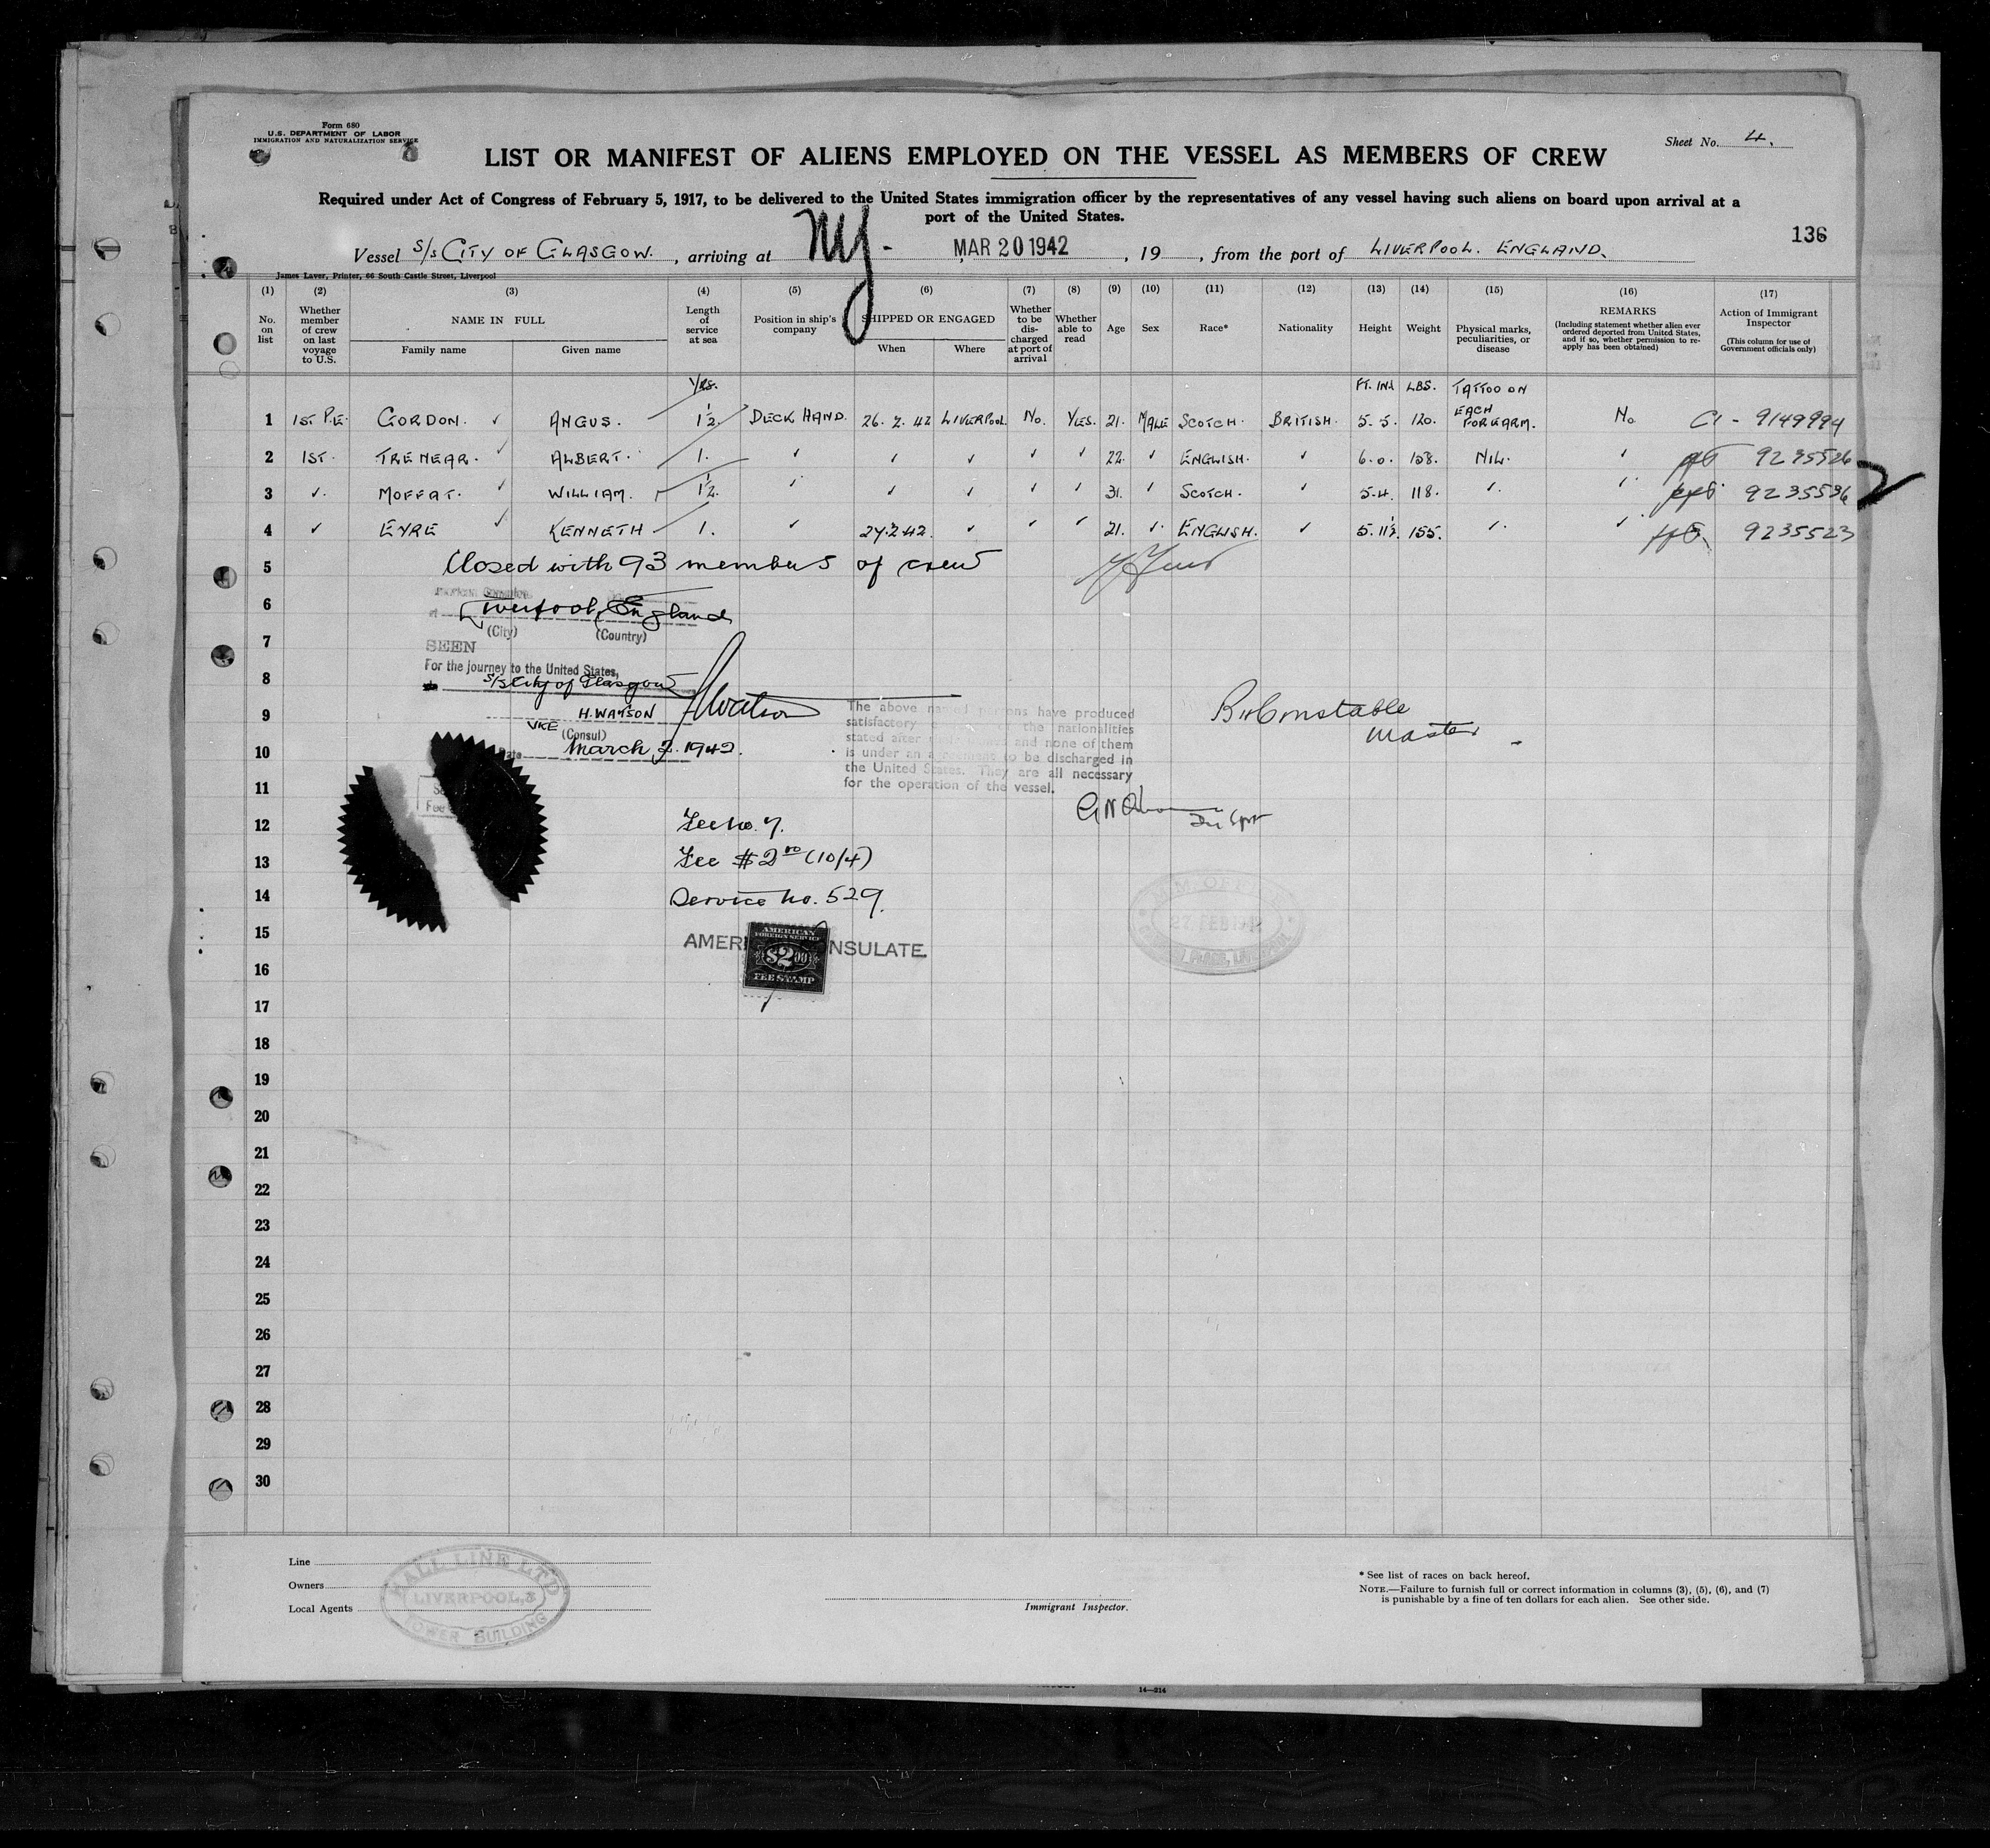 Form 680
U.S. DEPARTMENT OF LABOR
IMMIGRATION AND NATURALIZATION SERVICE
Sheet No. 4.
LIST OR MANIFEST OF ALIENS EMPLOYED ON THE VESSEL AS MEMBERS OF CREW
Required under Act of Congress of February 5, 1917, to be delivered to the United States immigration officer by the representatives of any vessel having such aliens on board upon arrival at a
port of the United States.
136
Vessel S/S CITY OF GLASGOW. , arriving at NY- MAR 20 1942 , 19 , from the port of LIVERPOOL. ENGLAND.
James Laver, Printer, 66 South Castle Street, Liverpool
(1) (2) (3) (4) (5) (6) (7) (8) (9) (10) (11) (12) (13) (14) (15) (16) (17)
No. on list
Whether member of crew on last voyage to U.S.
NAME IN FULL
Family name
Given name
Length of service at sea
Position in ship's company
SHIPPED OR ENGAGED
When
Where
Whether to be discharged at port of arrival
Whether able to read
Age
Sex
Race*
Nationality
Height
Weight
Physical marks, peculiarities, or disease
REMARKS
(Including statement whether alien ever ordered deported from United States, and if so, whether permission to reapply has been obtained)
Action of Immigrant Inspector
(This column for use of Government officials only)
YRS. FT. INS LBS. TATTOO ON
1 1ST P.E. GORDON. ✓ ANGUS. 1½ DECK HAND. 26.2.42 LIVERPOOL. No. YES. 21. MALE SCOTCH. BRITISH. 5.5. 120. EACH FOREARM. No CI - 9149994
2 1ST. TRENEAR. ✓ ALBERT. 1. ✓ ✓ ✓ ✓ ✓ 22. ✓ ENGLISH. ✓ 6.0. 158. NIL. ✓ 9235526
3 ✓ MOFFAT. ✓ WILLIAM. 1½. ✓ ✓ ✓ ✓ ✓ 31. ✓ SCOTCH. ✓ 5.4. 118. ✓ ✓ 9235536 2
4 ✓ EYRE ✓ KENNETH 1. ✓ 27.2.42. ✓ ✓ ✓ 21. ✓ ENGLISH. ✓ 5.11½. 155. ✓ ✓ 9235523
5 Closed with 93 members of crew
6 Liverpool, England
(City) (Country)
7
SEEN
For the journey to the United States,
8 S/S City of Glasgow
HWatson
H. WATSON
9 VICE (Consul)
10 Date March 2. 1942.
The above named persons have produced
satisfactory the nationalities
stated after and none of them
is under an agreement to be discharged in
the United States. They are all necessary
for the operation of the vessel.
Constable
Master
11
12 Fee No. 7.
13 Fee $2.00 (10/4)
14 Service No. 529.
27 FEB 1942
15 AMERI NSULATE.
AMERICAN
FOREIGN SERVICE
$2.00
FEE STAMP
16
17
18
19
20
21
22
23
24
25
26
27
28
29
30
Line
Owners
Local Agents
HALL LINE LTD
LIVERPOOL, 3
TOWER BUILDING
Immigrant Inspector.
* See list of races on back hereof.
NOTE.—Failure to furnish full or correct information in columns (3), (5), (6), and (7)
is punishable by a fine of ten dollars for each alien. See other side.
14—314